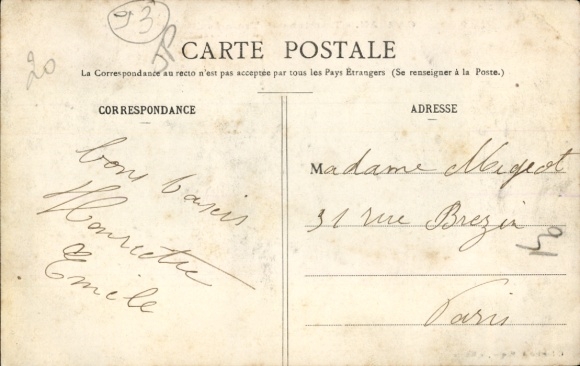 53
20
CARTE POSTALE
La Correspondance au recto n'est pas acceptée par tous les Pays Étrangers (Se renseigner à la Poste.)
CORRESPONDANCE
bons baisis
Henriette
Emile
ADRESSE
Madame Migeot
31 rue Brezin
Paris